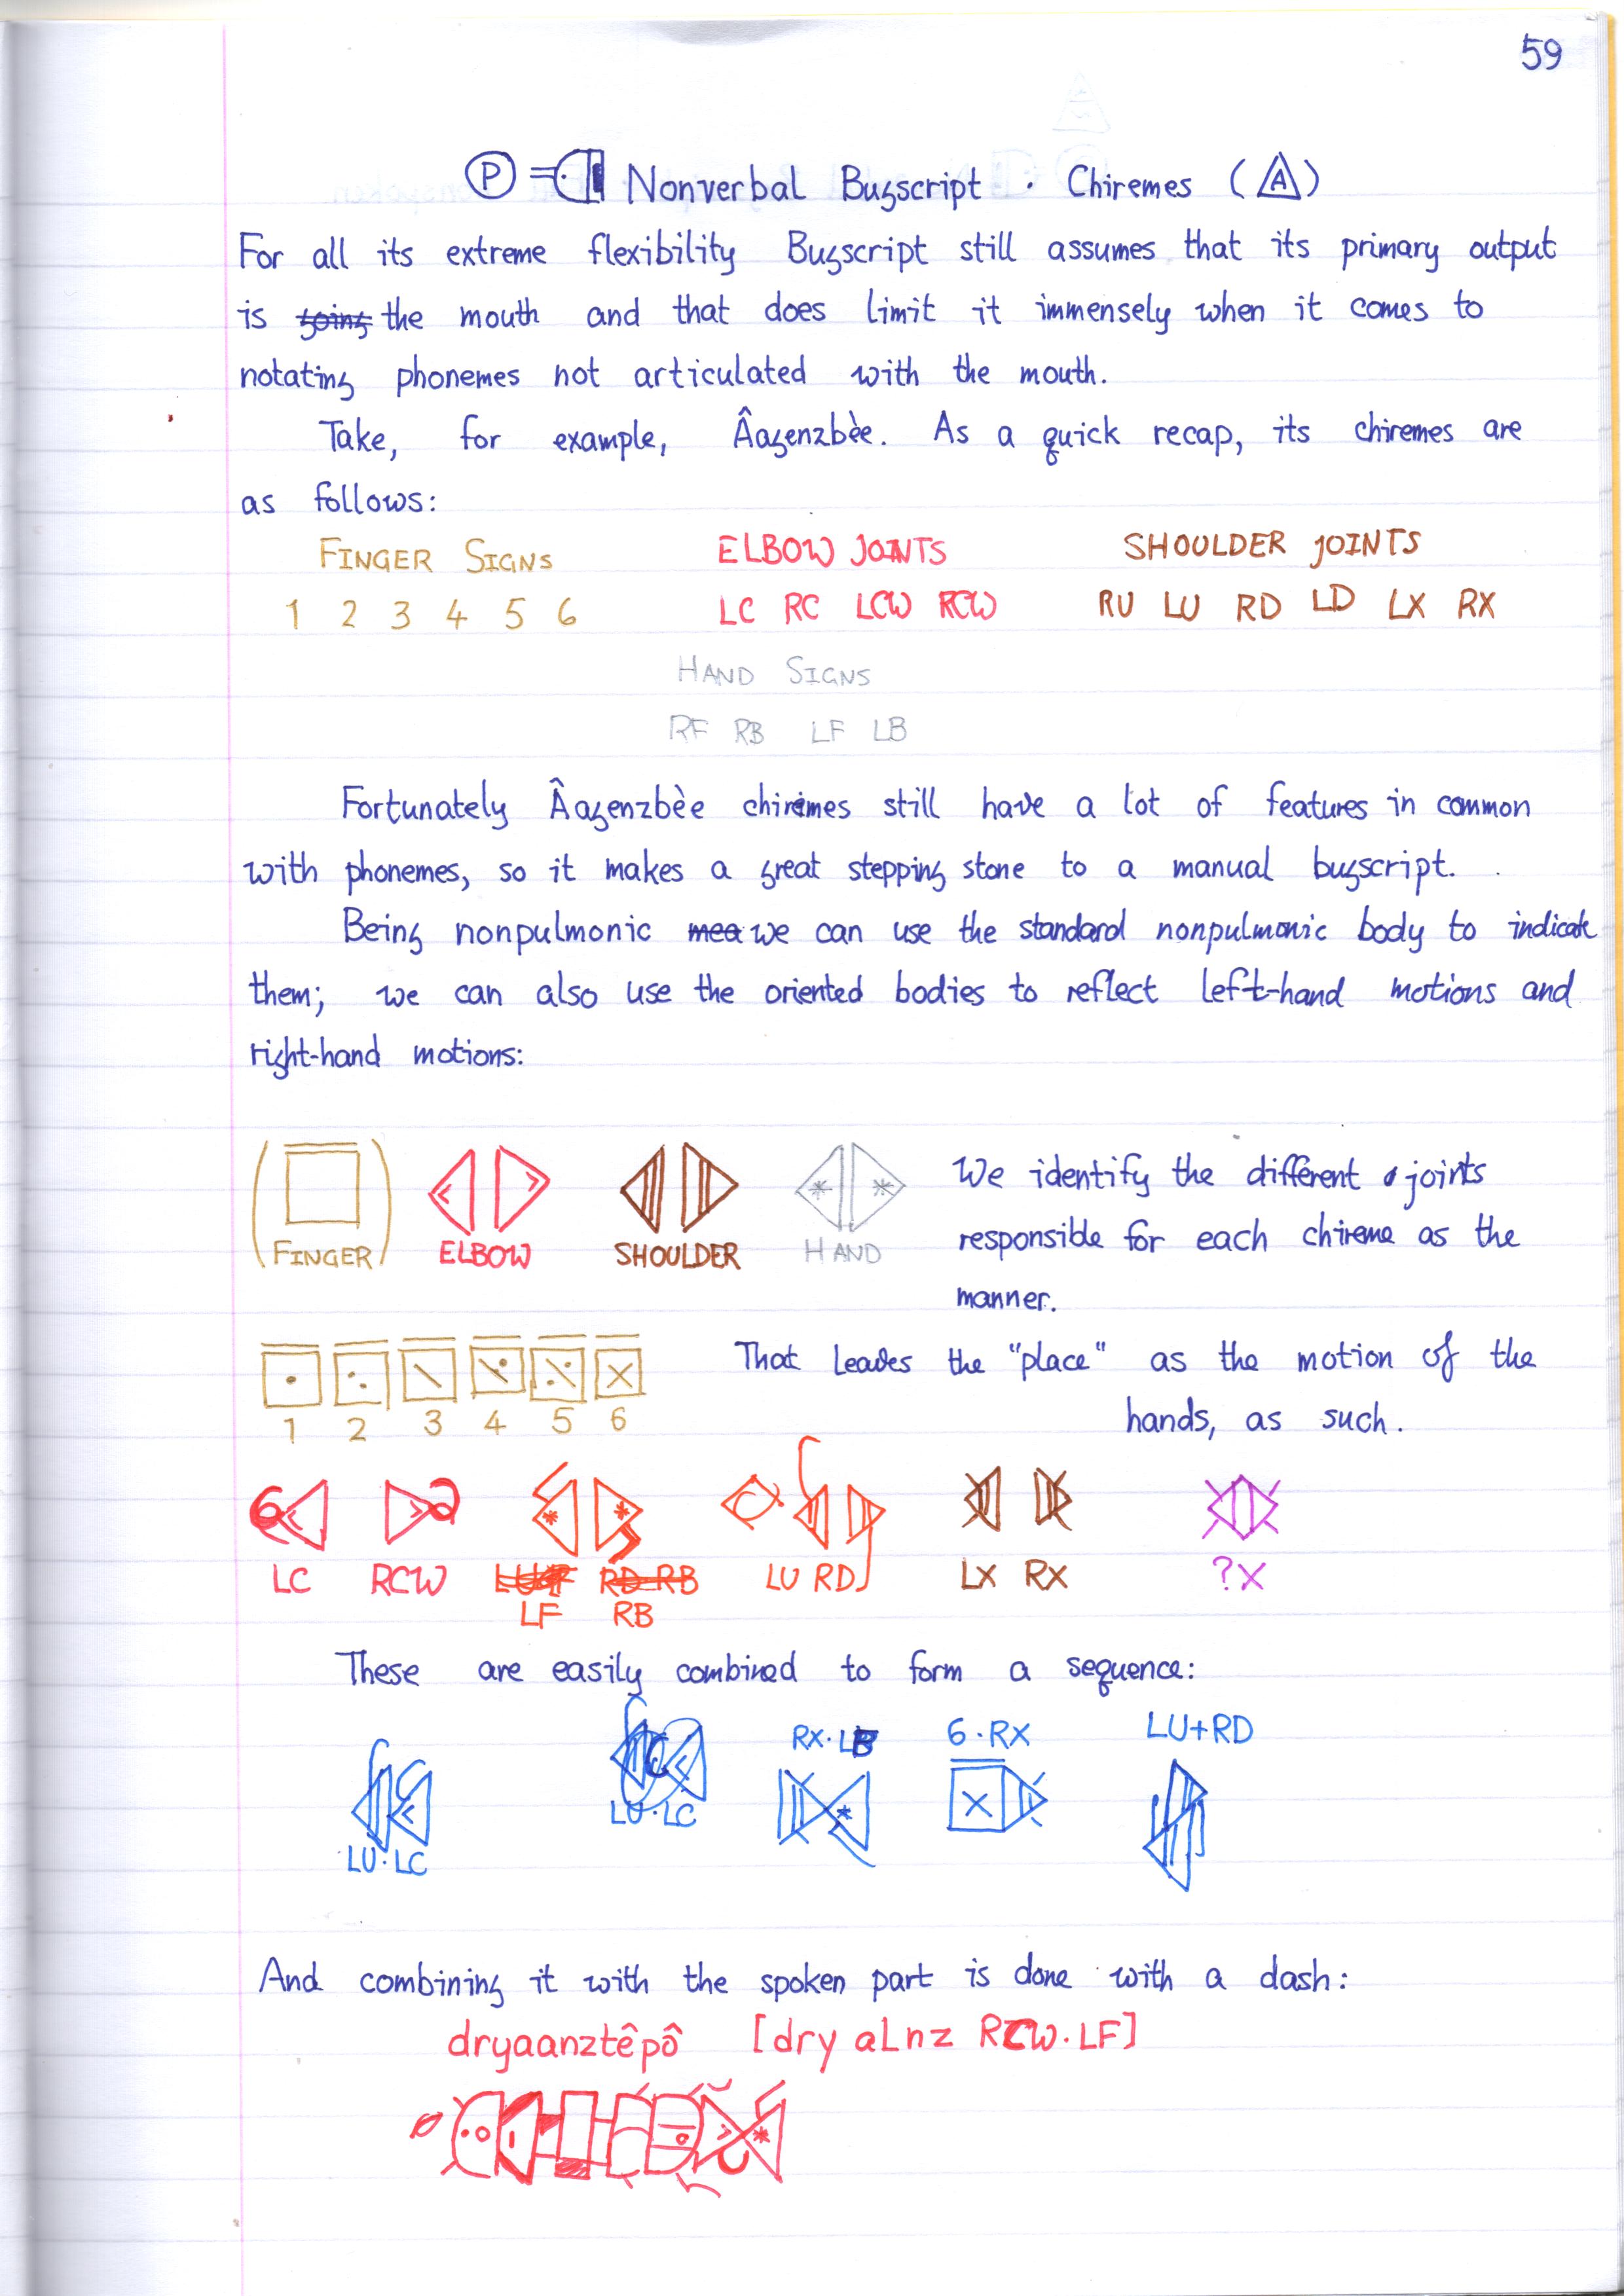 59
P Nonverbal Bugscript · Chiremes (A)
For all its extreme flexibility Bugscript still assumes that its primary output
is going the mouth and that does limit it immensely when it comes to
notating phonemes not articulated with the mouth.
Take, for example, Âagenzbèe. As a quick recap, its chiremes are
as follows:
FINGER SIGNS ELBOW JOINTS SHOULDER JOINTS
1 2 3 4 5 6 LC RC LCW RCW RU LU RD LD LX RX
HAND SIGNS
RF RB LF LB
Fortunately Âagenzbèe chiremes still have a lot of features in common
with phonemes, so it makes a great stepping stone to a manual bugscript.
Being nonpulmonic mea we can use the standard nonpulmonic body to indicate
them; we can also use the oriented bodies to reflect left-hand motions and
right-hand motions:
(FINGER) ELBOW SHOULDER HAND
We identify the different joints
responsible for each chireme as the
manner.
1 2 3 4 5 6
That leaves the "place" as the motion of the
hands, as such.
LC RCW RB LU RD LX RX ?X
LF RB
These are easily combined to form a sequence:
RX·LB 6·RX LU+RD
LU·LC LU·LC
And combining it with the spoken part is done with a dash:
dryaanztêpô [dry aLnz RCW·LF]